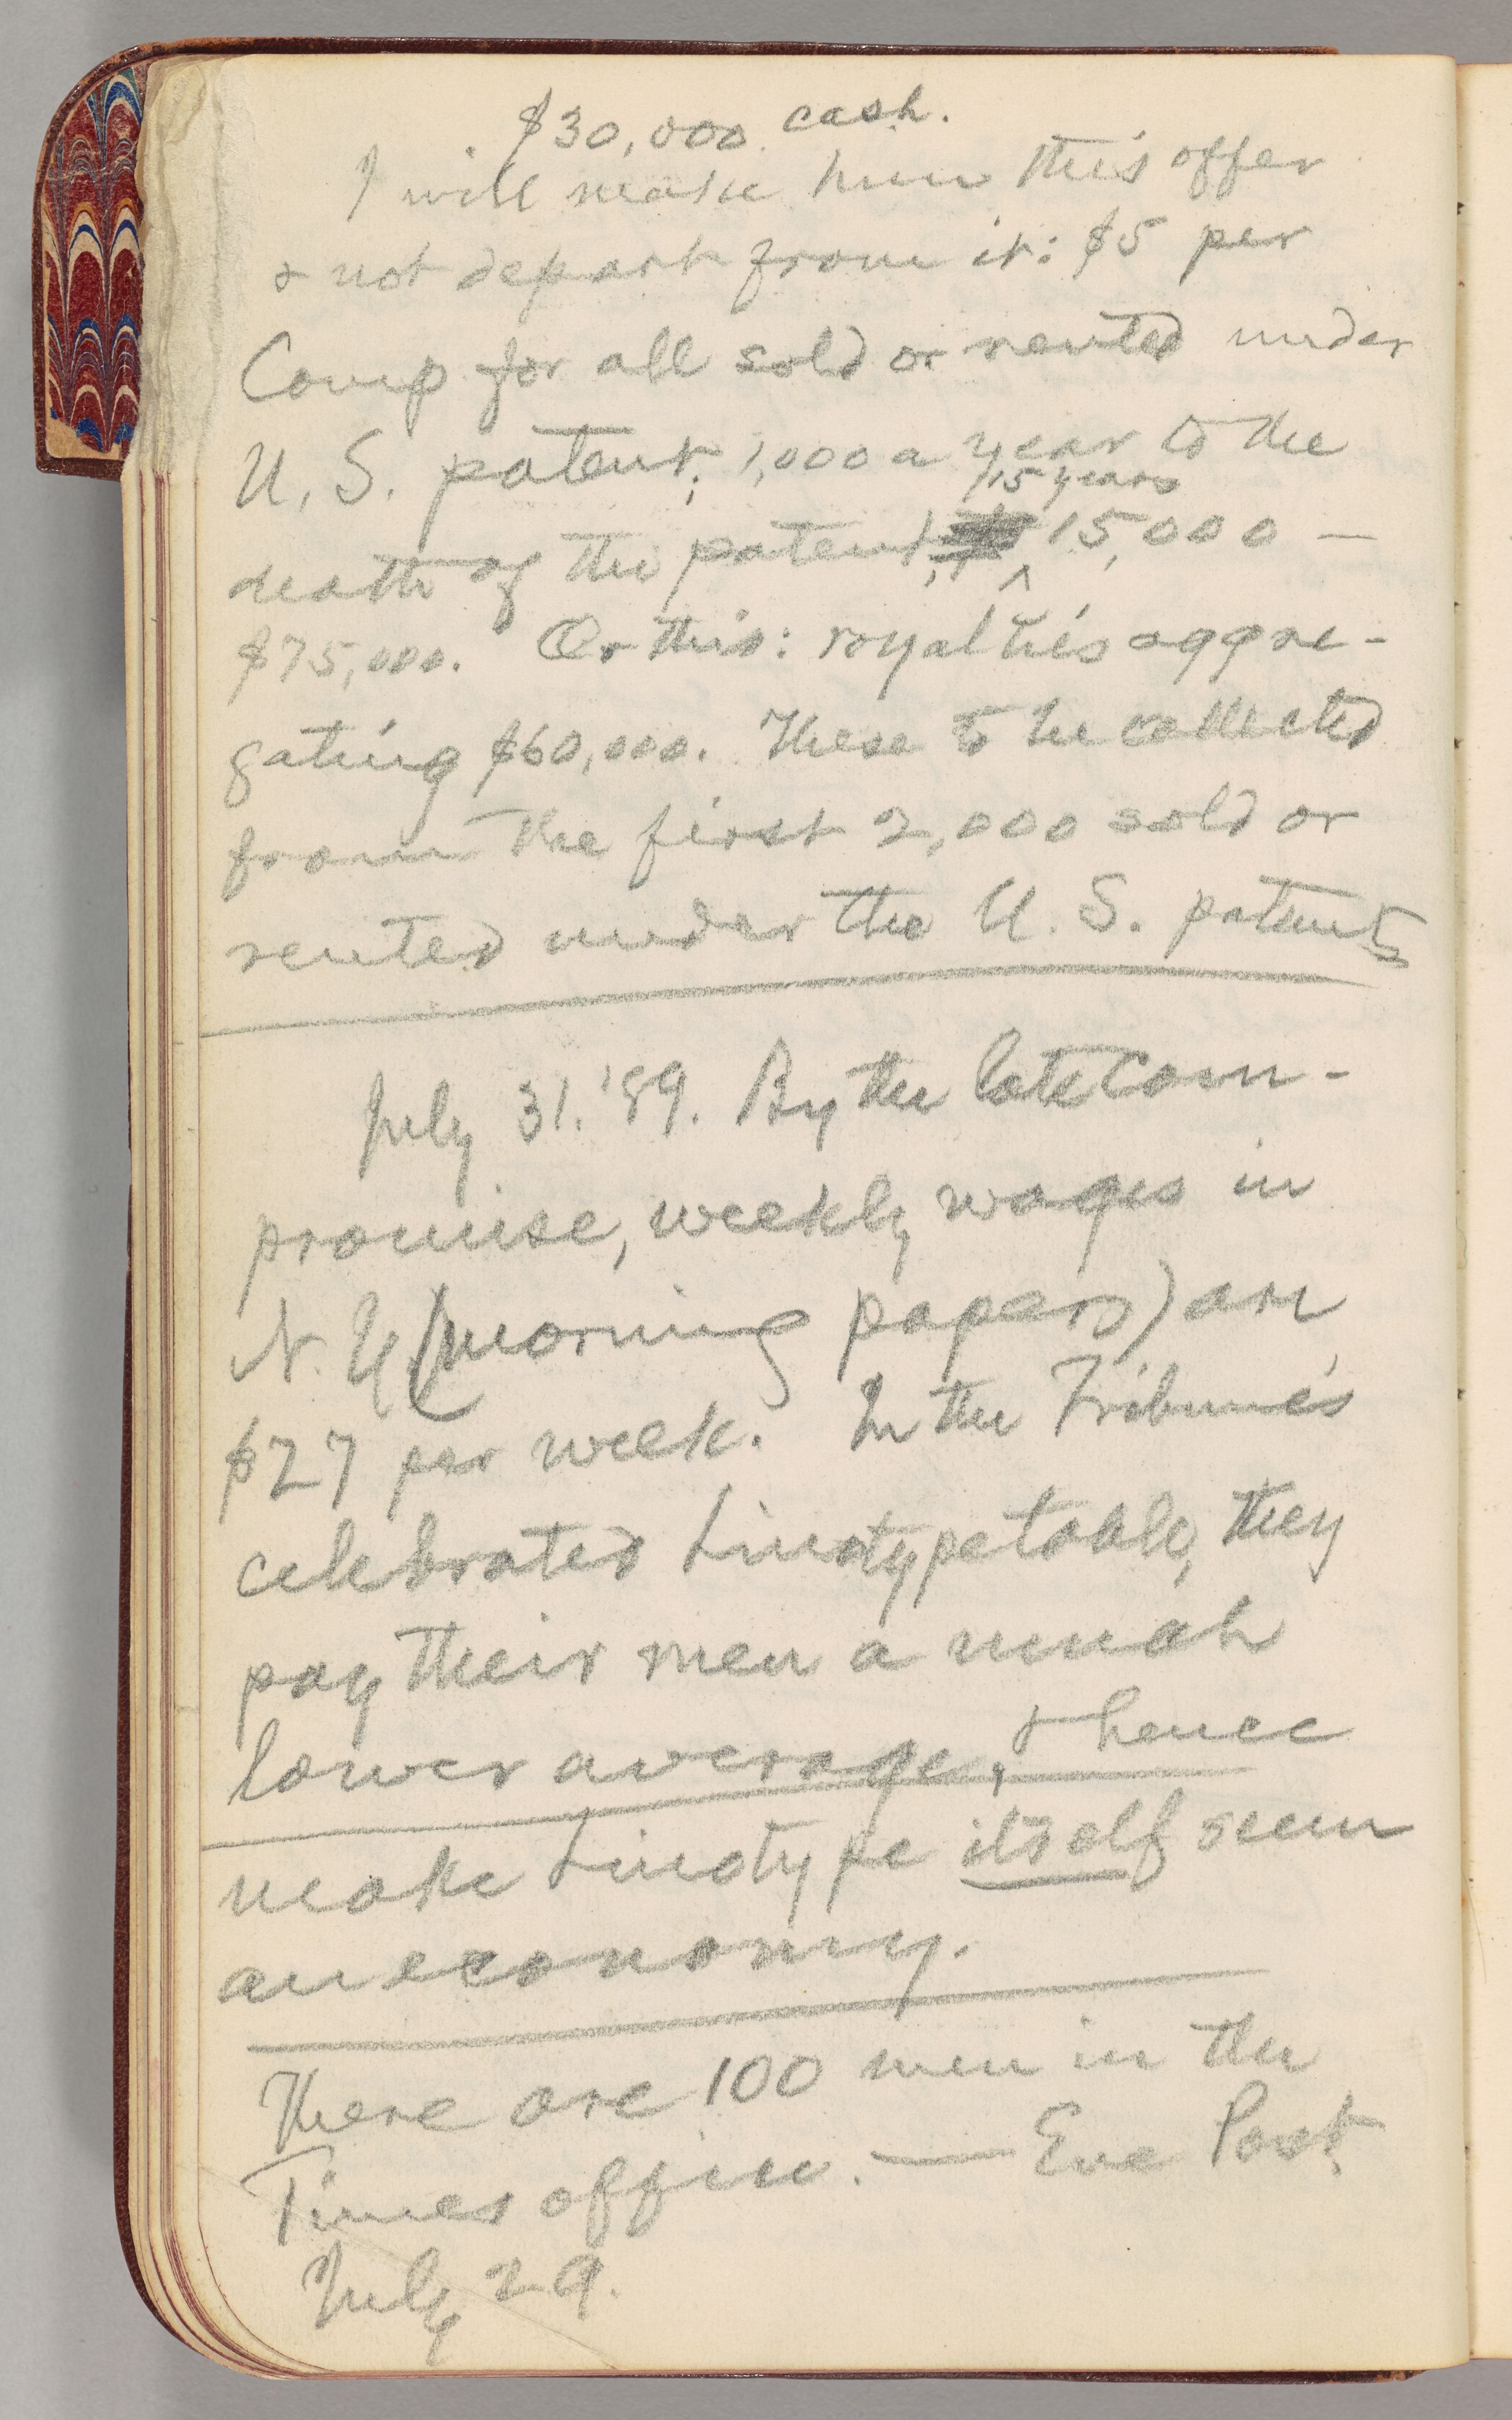 $30,000. cash.
I will make him this offer
& not depart from it: $5 per
Comp for all sold or rented under
U. S. patent; 1,000 a year to the
15 years
death of the patent; 15,000 —
$75,000. Or this: royalties aggre-
gating $60,000. These to be collected
from the first 2,000 sold or
rented under the U. S. patents
July 31. '89. By the late Com-
promise, weekly wages in
N. Y. (morning papers) are
$27 per week. In the Tribune's
celebrated Linotype table, they
pay their men a much
lower average, & hence
make Linotype itself seem
an economy.
There are 100 men in the
Times office. — Eve Post.
July 29.